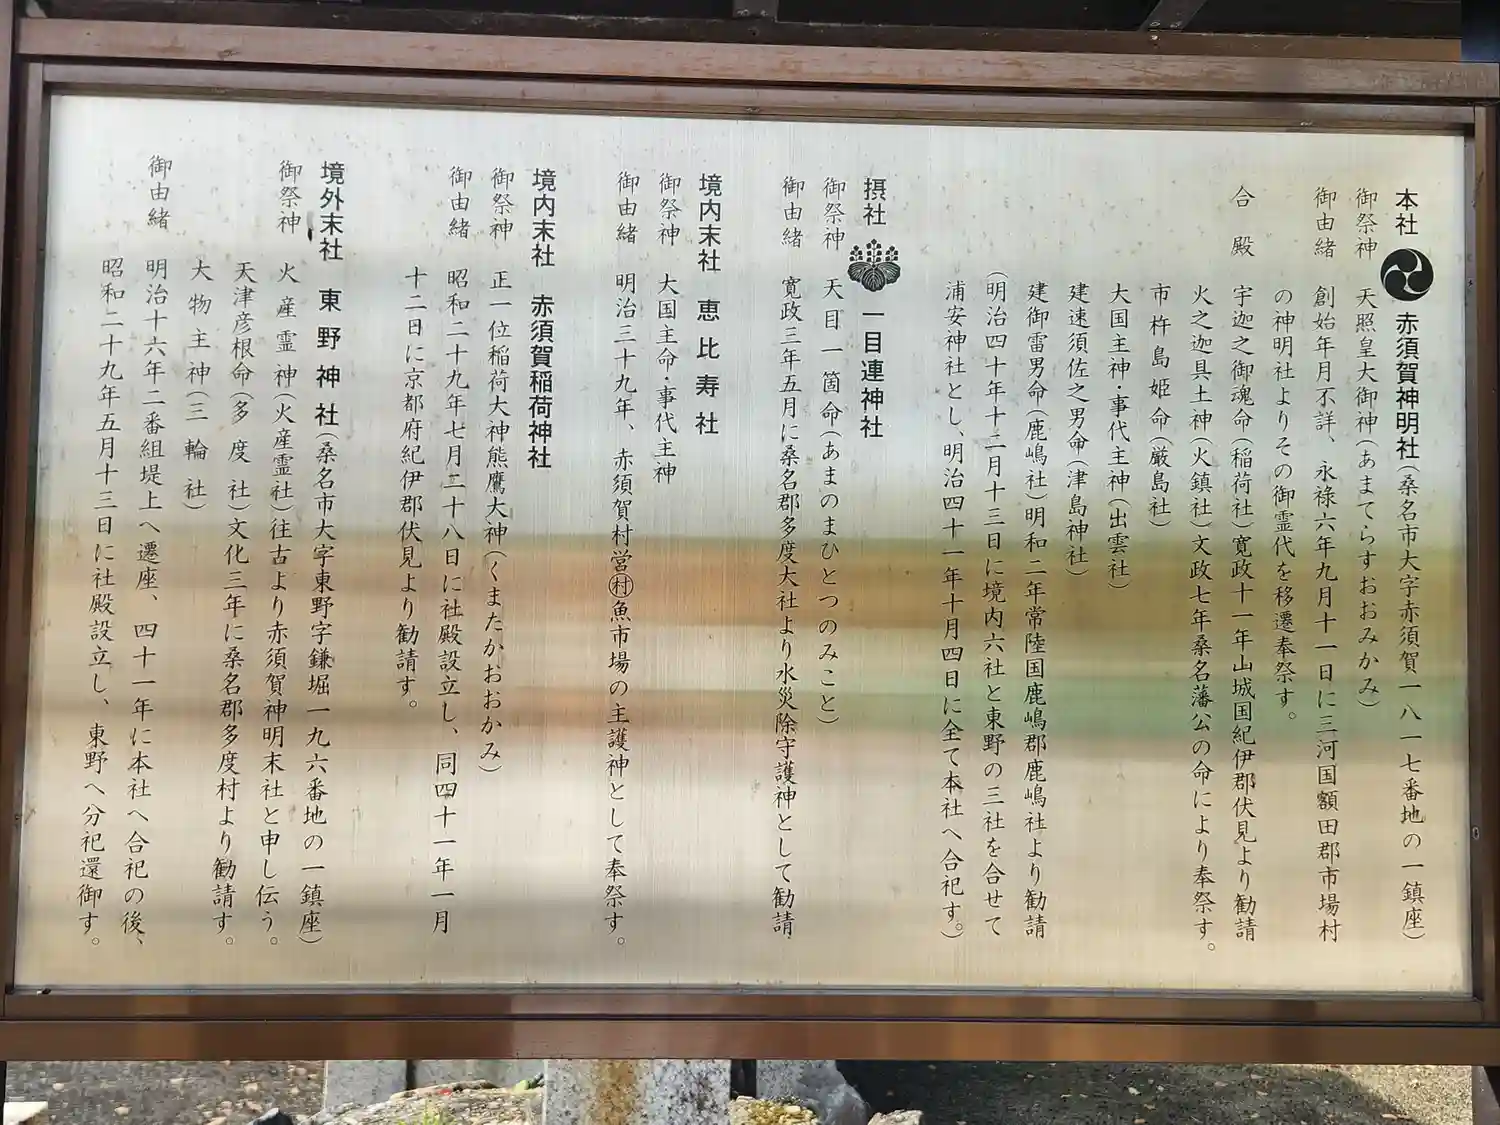 本社 赤須賀神明社(桑名市大字赤須賀一八一七番地の一鎮座)
御祭神 天照皇大御神(あまてらすおおみかみ)
御由緒 創始年月不詳、永禄六年九月十一日に三河国額田郡市場村
の神明社よりその御霊代を移遷奉祭す。
合殿 宇迦之御魂命(稲荷社)寛政十一年山城国紀伊郡伏見より勧請
火之迦具土神(火鎮社)文政七年桑名藩公の命により奉祭す。
市杵島姫命(厳島社)
大国主神・事代主神(出雲社)
建速須佐之男命(津島神社)
建御雷男命(鹿嶋社)明和二年常陸国鹿嶋郡鹿嶋社より勧請
(明治四十年十二月十三日に境内六社と東野の三社を合せて
浦安神社とし、明治四十一年十月四日に全て本社へ合祀す。)
摂社 一目連神社
御祭神 天目一箇命(あまのまひとつのみこと)
御由緒 寛政三年五月に桑名郡多度大社より水災除守護神として勧請.
境内末社 恵比寿社
御祭神 大国主命・事代主神
御由緒 明治三十九年、赤須賀村営㊞魚市場の主護神として奉祭す。
境内末社 赤須賀稲荷神社
御祭神 正一位稲荷大神熊鷹大神(くまたかおおかみ)
御由緒 昭和二十九年七月二十八日に社殿設立し、同四十一年一月
十二日に京都府紀伊郡伏見より勧請す。
境外末社 東野神社(桑名市大字東野字鎌堀一九六番地の一鎮座)
御祭神 火産霊神(火産霊社)往古より赤須賀神明末社と申し伝う。
天津彦根命(多度社)文化三年に桑名郡多度村より勧請す。
大物主神(三輪社)
御由緒 明治十六年二番組堤上へ遷座、四十一年に本社へ合祀の後、
昭和二十九年五月十三日に社殿設立し、東野へ分祀還御す。